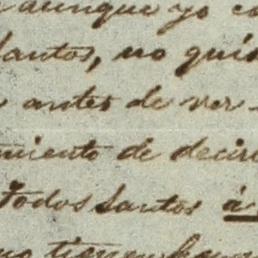 aunque yo co
Santos, no quis
antes de ver
miento de decir
Todos Santos á
no tienen